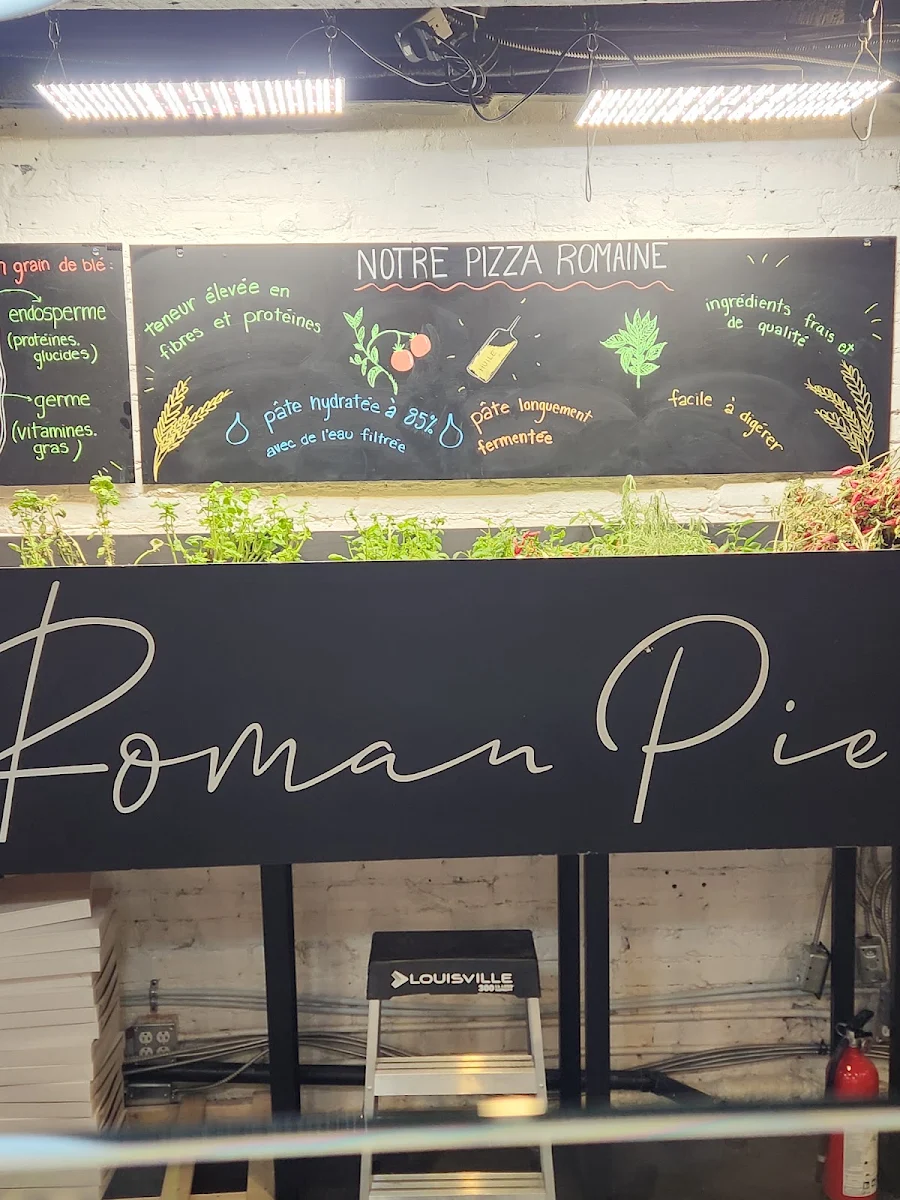 n grain de blé:
endosperme
(protéines.
glucides)
germe
(vitamines.
gras)
NOTRE PIZZA ROMAINE
teneur élevée en
fibres et protéines
HUILE
ingrédients frais et
de qualité
pâte hydratée à 85%
avec de l'eau filtrée
pâte longuement
fermentée
facile à digérer
Roman Pie
LOUISVILLE